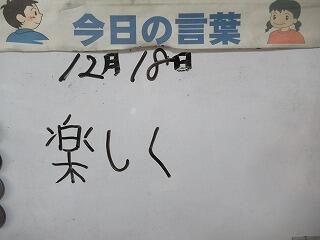 今日の言葉
12月18日
楽しく